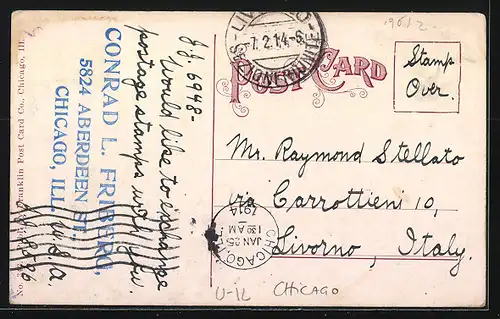 19612
LIVORNO
7.2.14-6
POST CARD
Stamp
Over.
Mr. Raymond Stellato
via Carrottieni 10,
Livorno, Italy.
CHICAGO, ILL.
JAN 25
1 30 AM
1914
U-IL CHICAGO
J.J. 6948-
Would like to exchange
postage stamps with you.
CONRAD L. FRIBERG,
5824 ABERDEEN ST.,
CHICAGO, ILL.
U.S.A.
Franklin Post Card Co., Chicago, Ill.